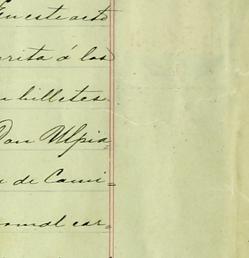 En este acto
rita á los
billetes
Don Ulpia-
de Cami-
car-